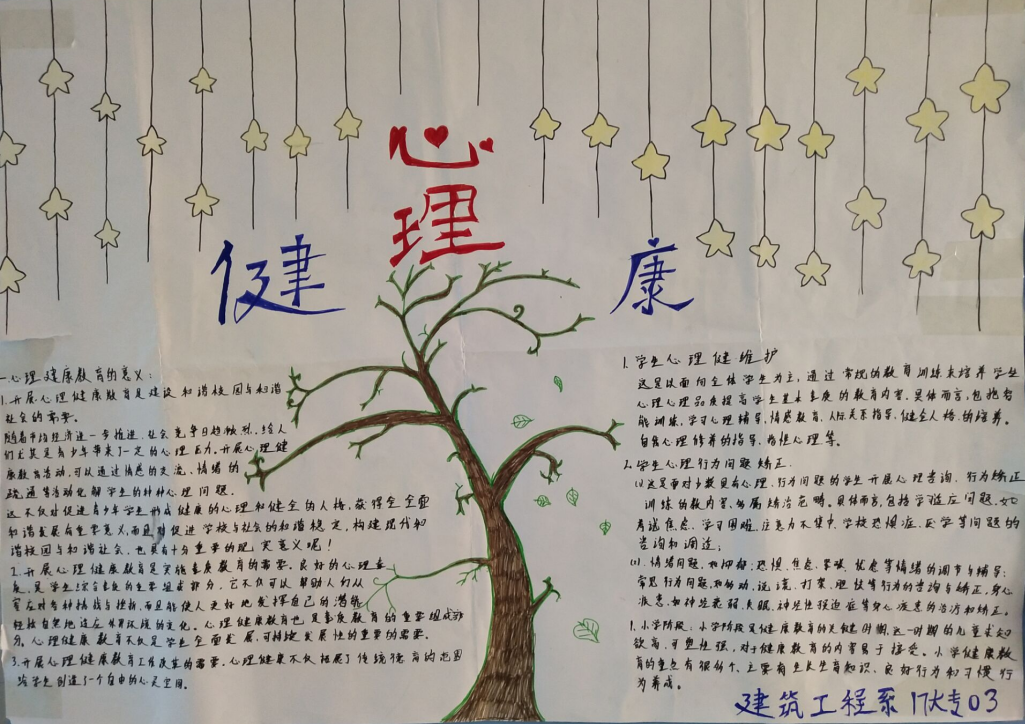 心理
健康
一.心理健康教育的意义:
1.开展心理健康教育是建设和谐校园与和谐
社会的需要。
随着市场经济进一步推进,社会竞争日趋激烈,给人
们尤其是青少年带来了一定的心理压力。开展心理健
康教育活动,可以通过情感的交流、情绪的
疏通等活动化解学生的种种心理问题.
这不仅对促进青少年学生形成健康的心理和健全的人格,获得全面
和谐发展有重要意义,而且对促进学校与社会的和谐稳定,构建现代和
谐校园与和谐社会,也具有十分重要的现实意义呢!
2.开展心理健康教育是实施素质教育的需要。良好的心理素
质,是学生综合素质的重要组成部分,它不仅可以帮助人们从
容应对各种挑战与挫折,而且能使人更好地发挥自己的潜能
轻松自然地适应外界环境的变化。心理健康教育也是素质教育的重要组成部
分,心理健康教育不仅是学生全面发展,可持续发展性的重要的需要。
3.开展心理健康教育工作改革的需要,心理健康不仅拓展了传统德育的范围
给学生创造了一个自由的心灵空间。
1.学生心理健维护
这是以面向全体学生为主,通过常规的教育训练来培养学生
心理心理品质提高学生基本素质的教育内容。具体而言,包括智
能训练,学习心理辅导,情感教育,人际关系指导,健全人格的培养。
自我心理修养的指导,与性心理等。
2.学生心理行为问题矫正.
(1)这是面对少数具有心理、行为问题的学生开展心理咨询、行为矫正
训练的教内容,多属矫治范畴。具体而言,包括学习适应问题,如
考试焦虑、学习困难、注意力不集中,学校恐惧症、厌学等问题的
咨询和调适;
(1).情绪问题,如抑郁、恐惧、焦虑、紧张、忧虑等情绪的调节与辅导;
常见行为问题,如多动,说谎、打架,胆怯等行为的咨询与矫正,身心
疾患,如神经衰弱、失眠、神经性强迫症等身心疾患的治疗和矫正。
1.小学阶段:小学阶段是健康教育的关健时期,这一时期的儿童求知
欲高,可塑性强,对于健康教育的内容易于接受。小学健康教
育的重点有很多个,主要有生长生育知识、良好行为和习惯行
为养成。
建筑工程系17大专03